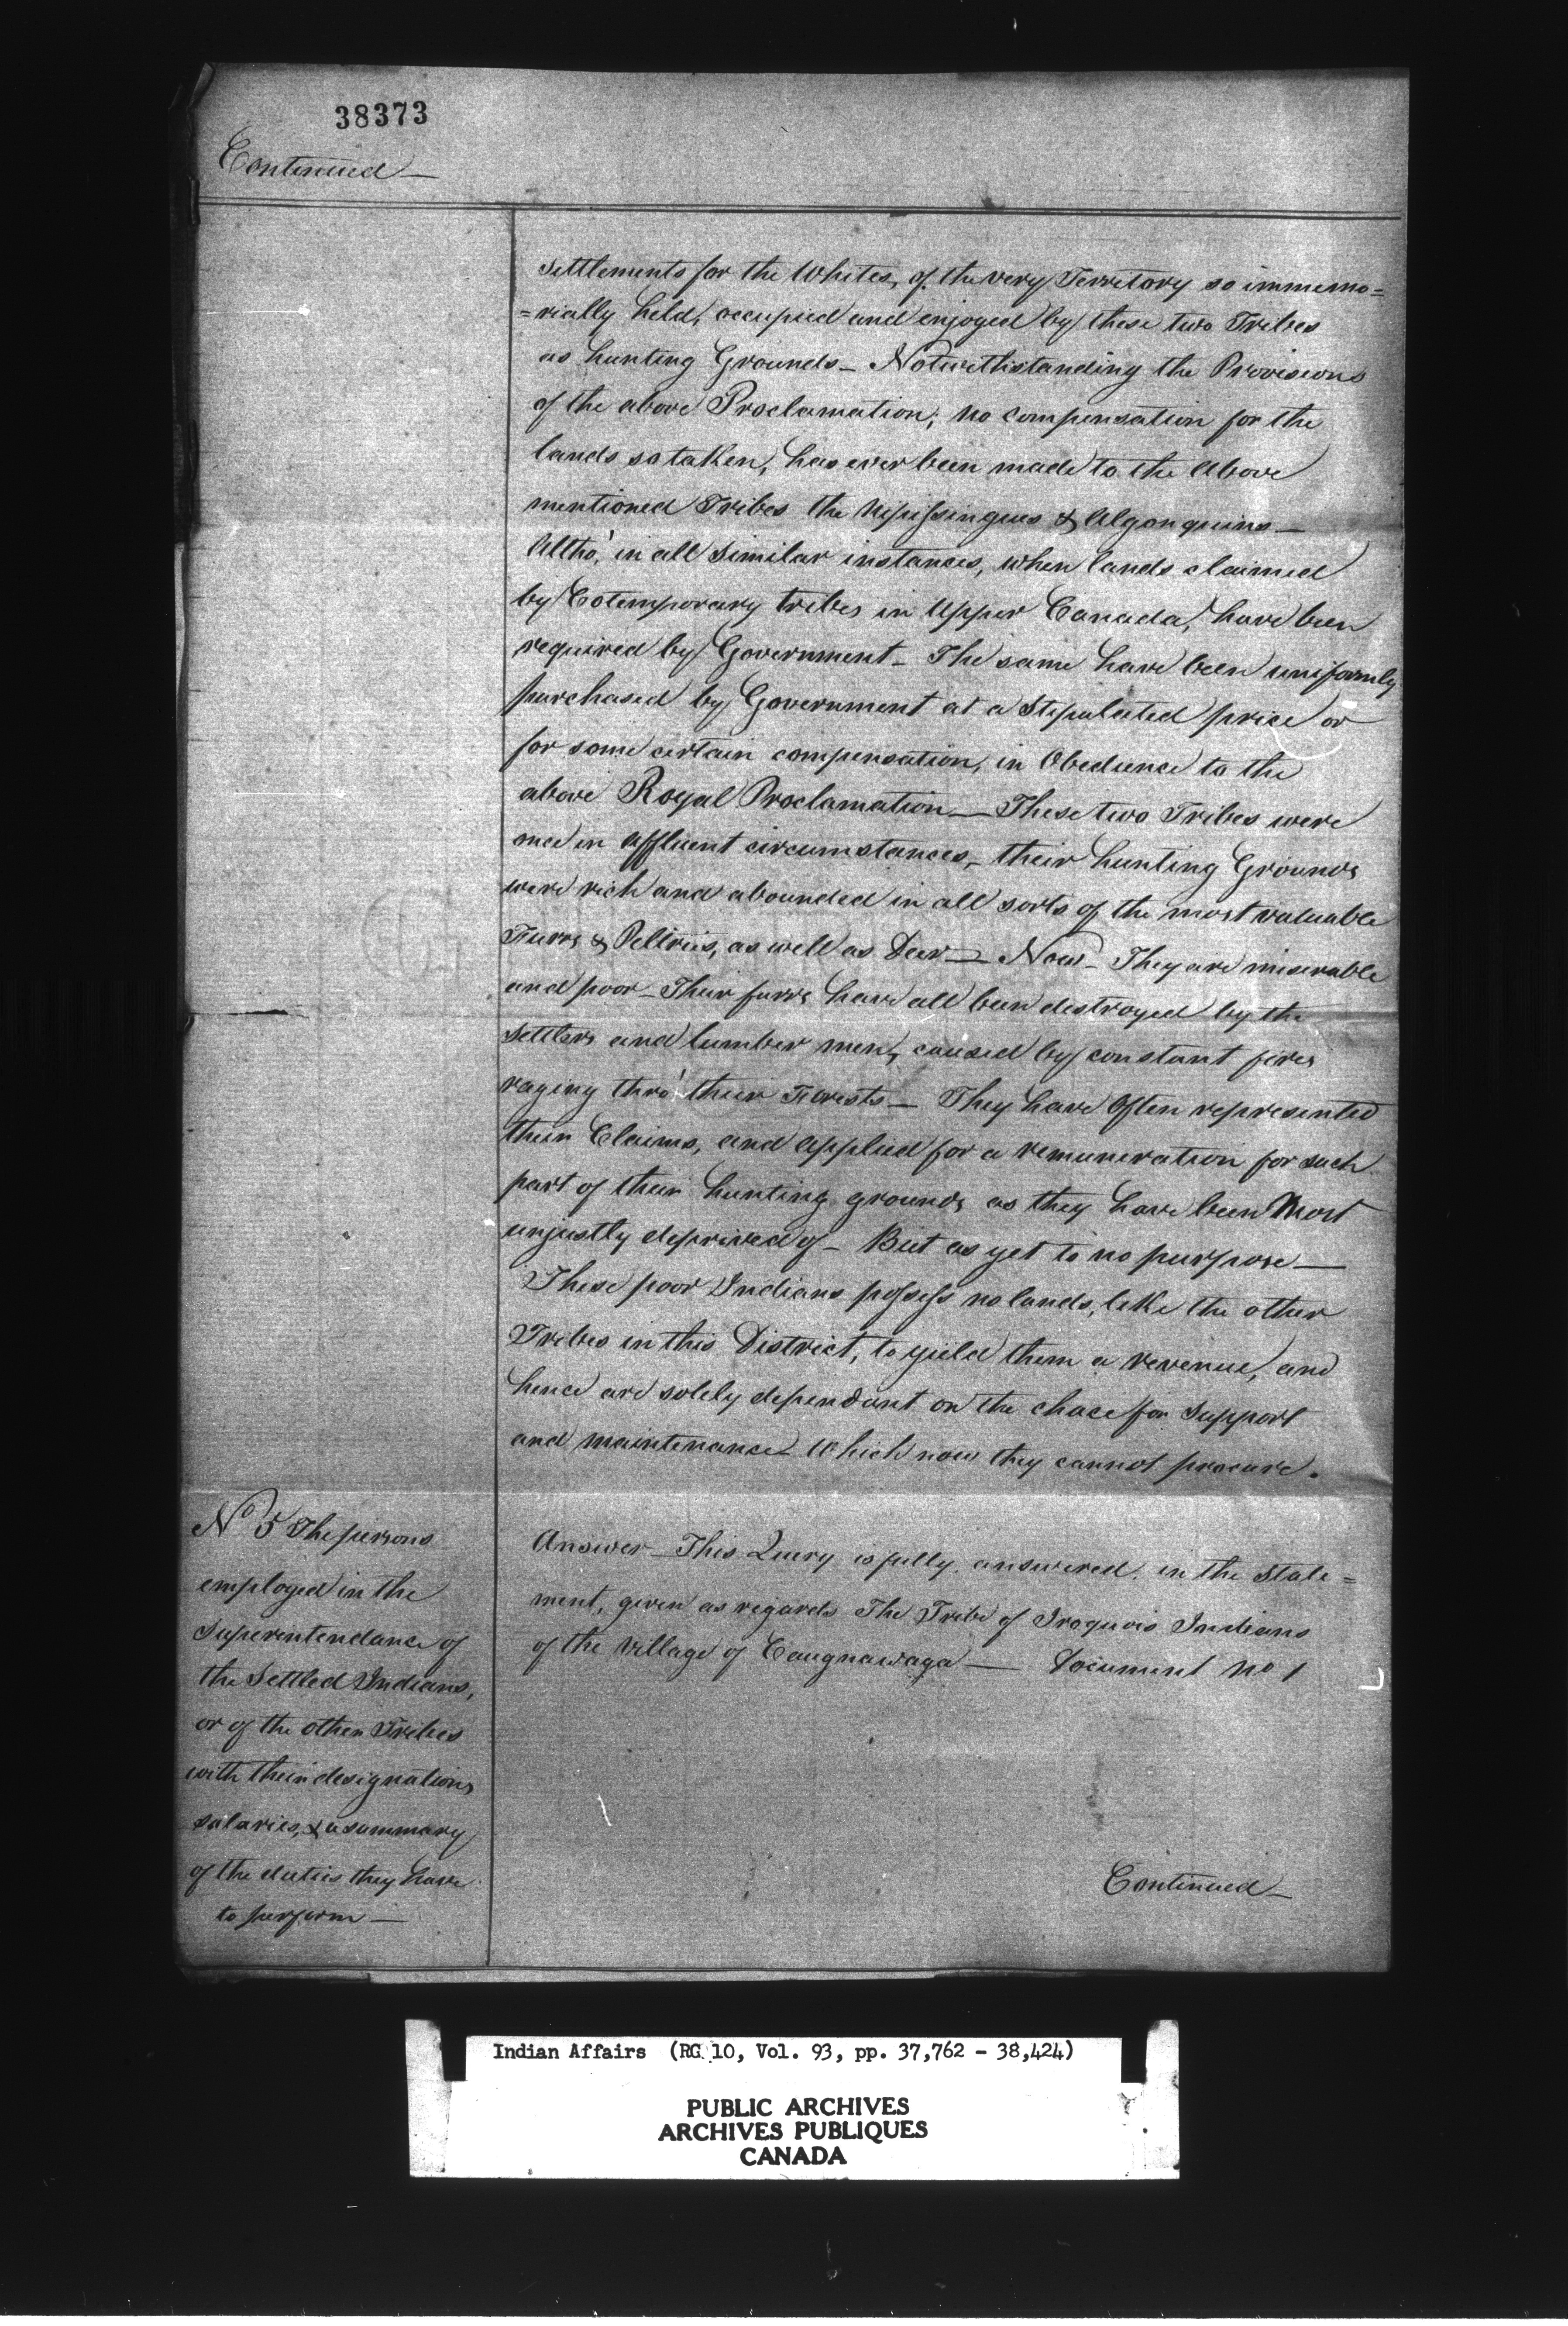 38373
Continued —
settlements for the Whites, of the very Territory so immemo=
=rially held, occupied and enjoyed by these two Tribes
as hunting Grounds — Notwithstanding the Provisions
of the above Proclamation, no compensation for the
lands so taken, has ever been made to the Above
mentioned Tribes the Nipissingues & Algonquins —
Altho' in all similar instances, when lands claimed
by Cotemporary tribes in Upper Canada, have been
required by Government — The same have been uniformly
purchased by Government at a Stipulated price or
for some certain compensation, in Obedience to the
above Royal Proclamation — These two Tribes were
once in affluent circumstances, their hunting Grounds
were rich and abounded in all sorts of the most valuable
Furrs & Peltries, as well as Deer — Now — They are miserable
and poor — Their furrs have all been destroyed by the
settlers and lumber men, caused by constant fires
raging thro' their Forests — They have Often represented
their Claims, and applied for a remuneration for such
part of their hunting grounds as they have been Most
unjustly deprived of — But as yet to no purpose —
These poor Indians possess no lands, like the other
Tribes in this District, to yield them a revenue, and
hence are solely dependant on the chace for Support
and maintenance Which now they cannot procure.
No 5 The persons
employed in the
Superintendance of
the Settled Indians,
or of the other Tribes
with their designations
salaries, & a summary
of the duties they have
to perform —
Answer — This Query is fully answered in the State=
ment, given as regards The Tribe of Iroquois Indians
of the Village of Caugnawaga — Document No 1
Continued —
Indian Affairs (RG 10, Vol. 93, pp. 37,762 - 38,424)
PUBLIC ARCHIVES
ARCHIVES PUBLIQUES
CANADA